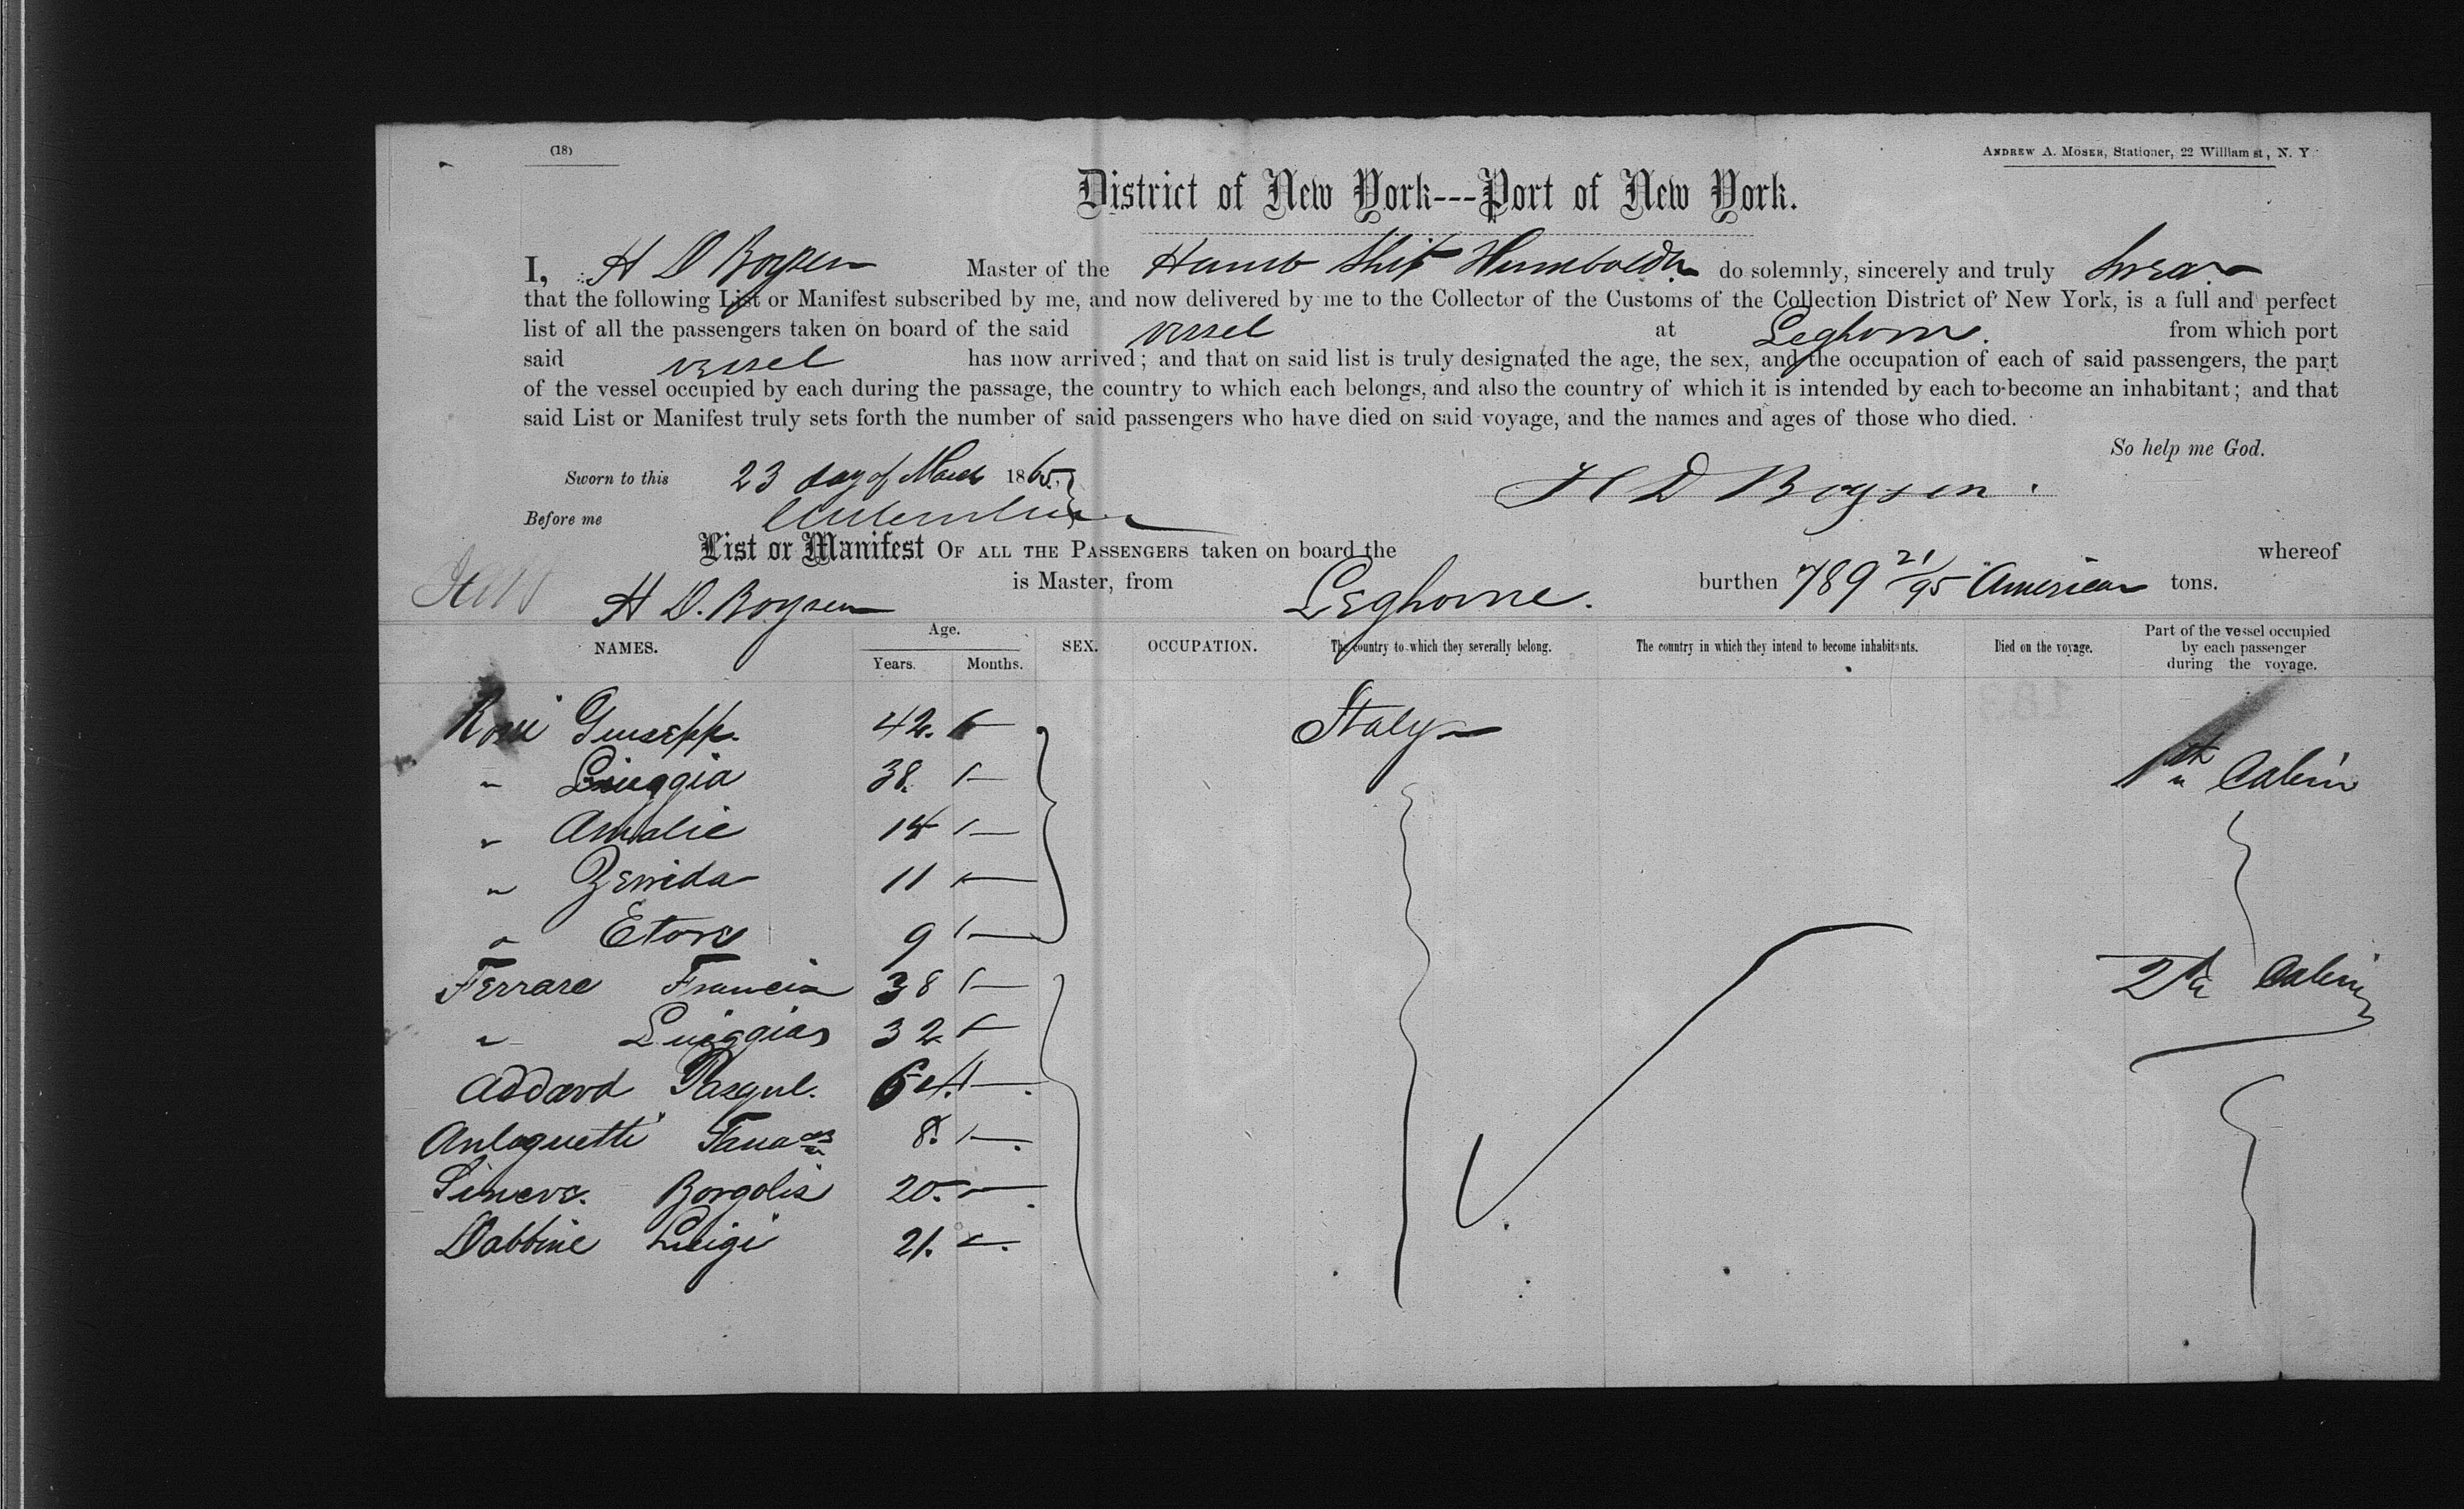 (18)
ANDREW A. MOSER, Stationer, 22 William st, N. Y.
District of New York---Port of New York.
I, H D Boysen Master of the Hamb Ship Humboldt do solemnly, sincerely and truly swear
that the following List or Manifest subscribed by me, and now delivered by me to the Collector of the Customs of the Collection District of New York, is a full and perfect
list of all the passengers taken on board of the said vessel at Leghorn. from which port
said vessel has now arrived; and that on said list is truly designated the age, the sex, and the occupation of each of said passengers, the part
of the vessel occupied by each during the passage, the country to which each belongs, and also the country of which it is intended by each to become an inhabitant; and that
said List or Manifest truly sets forth the number of said passengers who have died on said voyage, and the names and ages of those who died.
So help me God.
Sworn to this 23 day of March 1865. H D Boysen.
Before me
List or Manifest OF ALL THE PASSENGERS taken on board the whereof
H D. Boysen is Master, from Leghorne. burthen 789 21/95 American tons.
NAMES. Age. Years. Months. SEX. OCCUPATION. The country to which they severally belong. The country in which they intend to become inhabitants. Died on the voyage. Part of the vessel occupied by each passenger during the voyage.
Giusepp. 42. Italy
" Luiggia 38. 1th Cabin
" Amalie 14
" Zenida 11
" Etore 9
Ferrare Francis 38 2th Cabin
" Luiggia 32
Addard Pasqul. 64.
8.
Borgolis 20.
Dabbine Luigi 21.